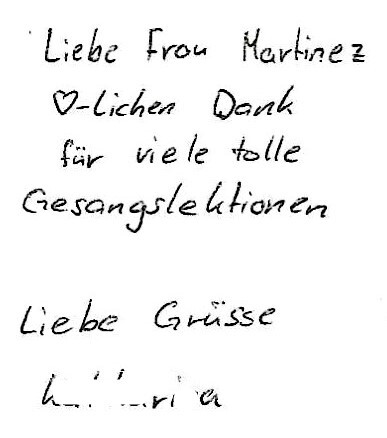 Liebe Frau Martinez
♡-lichen Dank
für viele tolle
Gesangslektionen
Liebe Grüsse